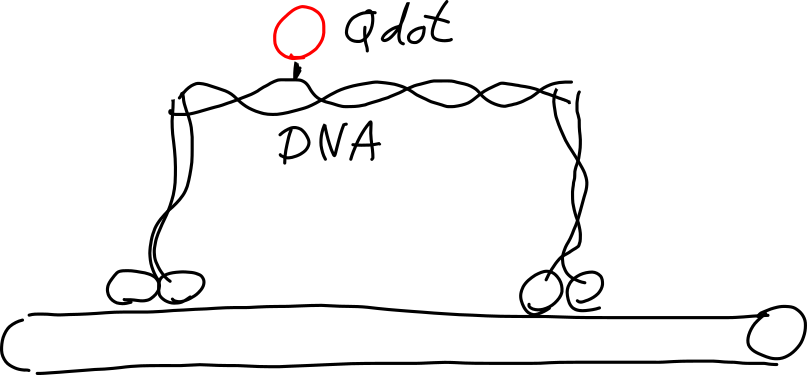 Qdot
DNA